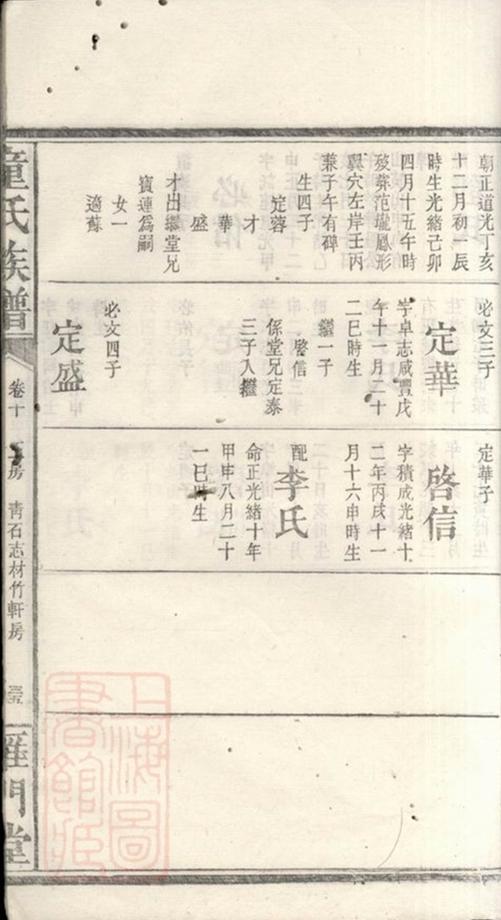 朝正道光丁亥
十二月初一辰
時生光緒己卯
四月十五午時
歿葬范壠鳳形
翼穴左岸壬丙
兼子午有碑
生四子
定蓉
才
華
盛
才出繼堂兄
寶蓮為嗣
女一
適蘇
必文三子
定華
字卓志咸豐戊
午十一月二十
二巳時生
繼一子
啓信
係堂兄定泰
三子入繼
必文四子
定盛
定華子
啓信
字積成光緒十
二年丙戌十一
月十六申時生
配
李氏
命正光緒十年
甲申八月二十
一巳時生
童氏族譜
卷十
房
青石志材竹軒房
雁門堂
上海圖
書館藏